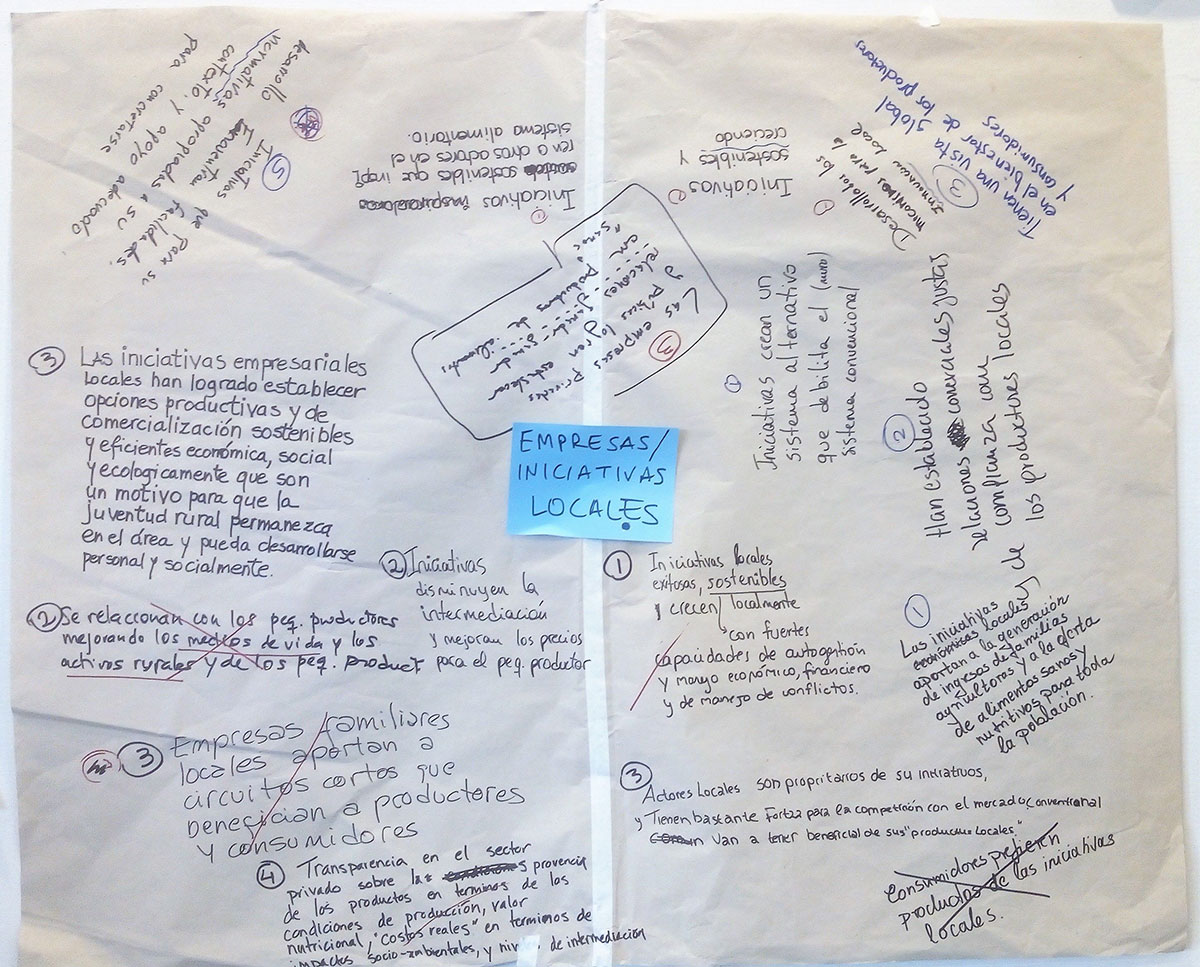 EMPRESAS/
INICIATIVAS
LOCALES
desarrollo
normativas apropiadas a su
contexto, y apoyo adecuado
para concretarse
5
Iniciativas que para su
encuentran facilidades.
1
Iniciativas
sostenibles que inspi-
ren a otros actores en el
sistema alimentario.
2
Iniciativas
sostenibles y
creciendo
1
Desarrollados los
incentivos para la
local
3
Tienen una vista global
en el bienestar de los productores
y consumidores
3
Las empresas privadas
y públicas logran establecer
relaciones
con productores de alimentos
"sanos"
1
Iniciativas crean un
sistema alternativo
que debilita el (nuno)
sistema convencional
2
Han establecido
relaciones comerciales justas
y de complianza con
los productores locales
3 Las iniciativas empresariales
Locales han logrado establecer
opciones productivas y de
comercialización sostenibles
y eficientes económica, social
y ecologicamente que son
un motivo para que la
juventud rural permanezca
en el área y pueda desarrollarse
personal y socialmente.
2 Iniciativas
disminuyen la
intermediación
y mejoran los precios
para el peq. productor
2 Se relaccionan con los peq. productores
mejorando los medios de vida y los
activos rurales y de los peq. product
3 Empresas familiares
locales aportan a
circuitos cortos que
benefician a productores
y consumidores
4 Transparencia en el sector
privado sobre las provencia
de los productos en terminos de los
condiciones de producción, valor
nutricional, "costos reales" en terminos de
impactos socio-ambientales, y nivel de intermediación
1 Iniciativas locales
exitosas, sostenibles
y crecen localmente
con fuertes
capacidades de autogestión
y manejo económico, financiero
y de manejo de conflictos.
1
Las iniciativas
económicas locales
aportan a la generación
de ingresos de familias
agricultoras y a la oferta
de alimentos sanos y
nutritivos para toda
la población.
3
Actores Locales son propritarios de su iniciativos,
y Tienen bastante Fortza para la competición con el mercado conventional
Van a tener beneficial de sus "productus locales"
Consumidores prefieren
productos de las iniciativas
locales.